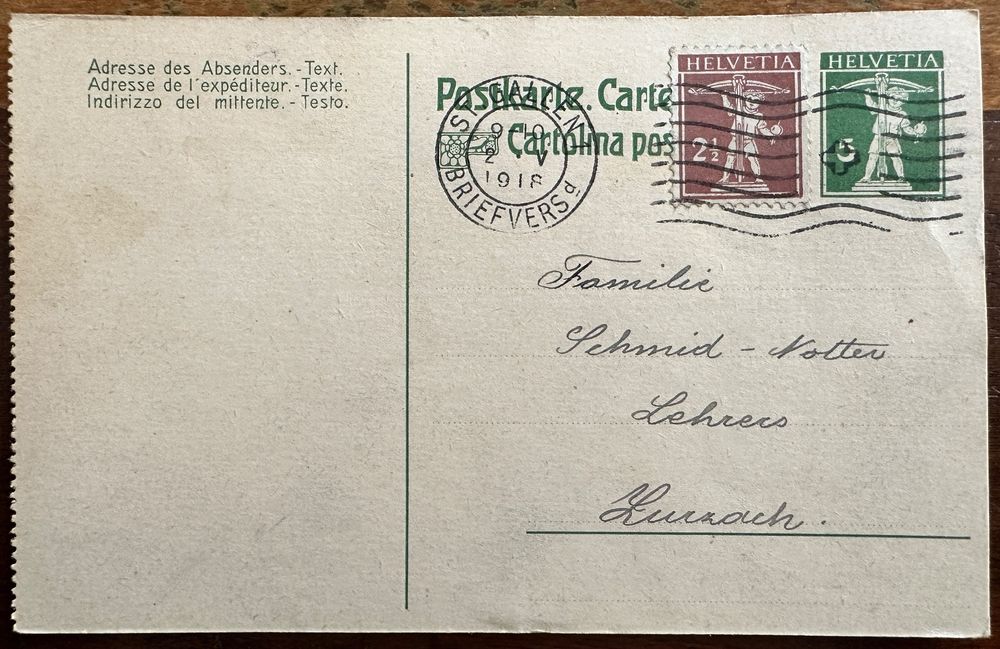 Adresse des Absenders.-Text.
Adresse de l'expéditeur.-Texte.
Indirizzo del mittente.-Testo.
Postkarte. Carte
Cartolina pos
ST. GALLEN 1
9-10
2 V
1918
BRIEFVERS d
HELVETIA
2½
HELVETIA
5
Familie
Schmid - Notter
Lehrers
Zurzach.